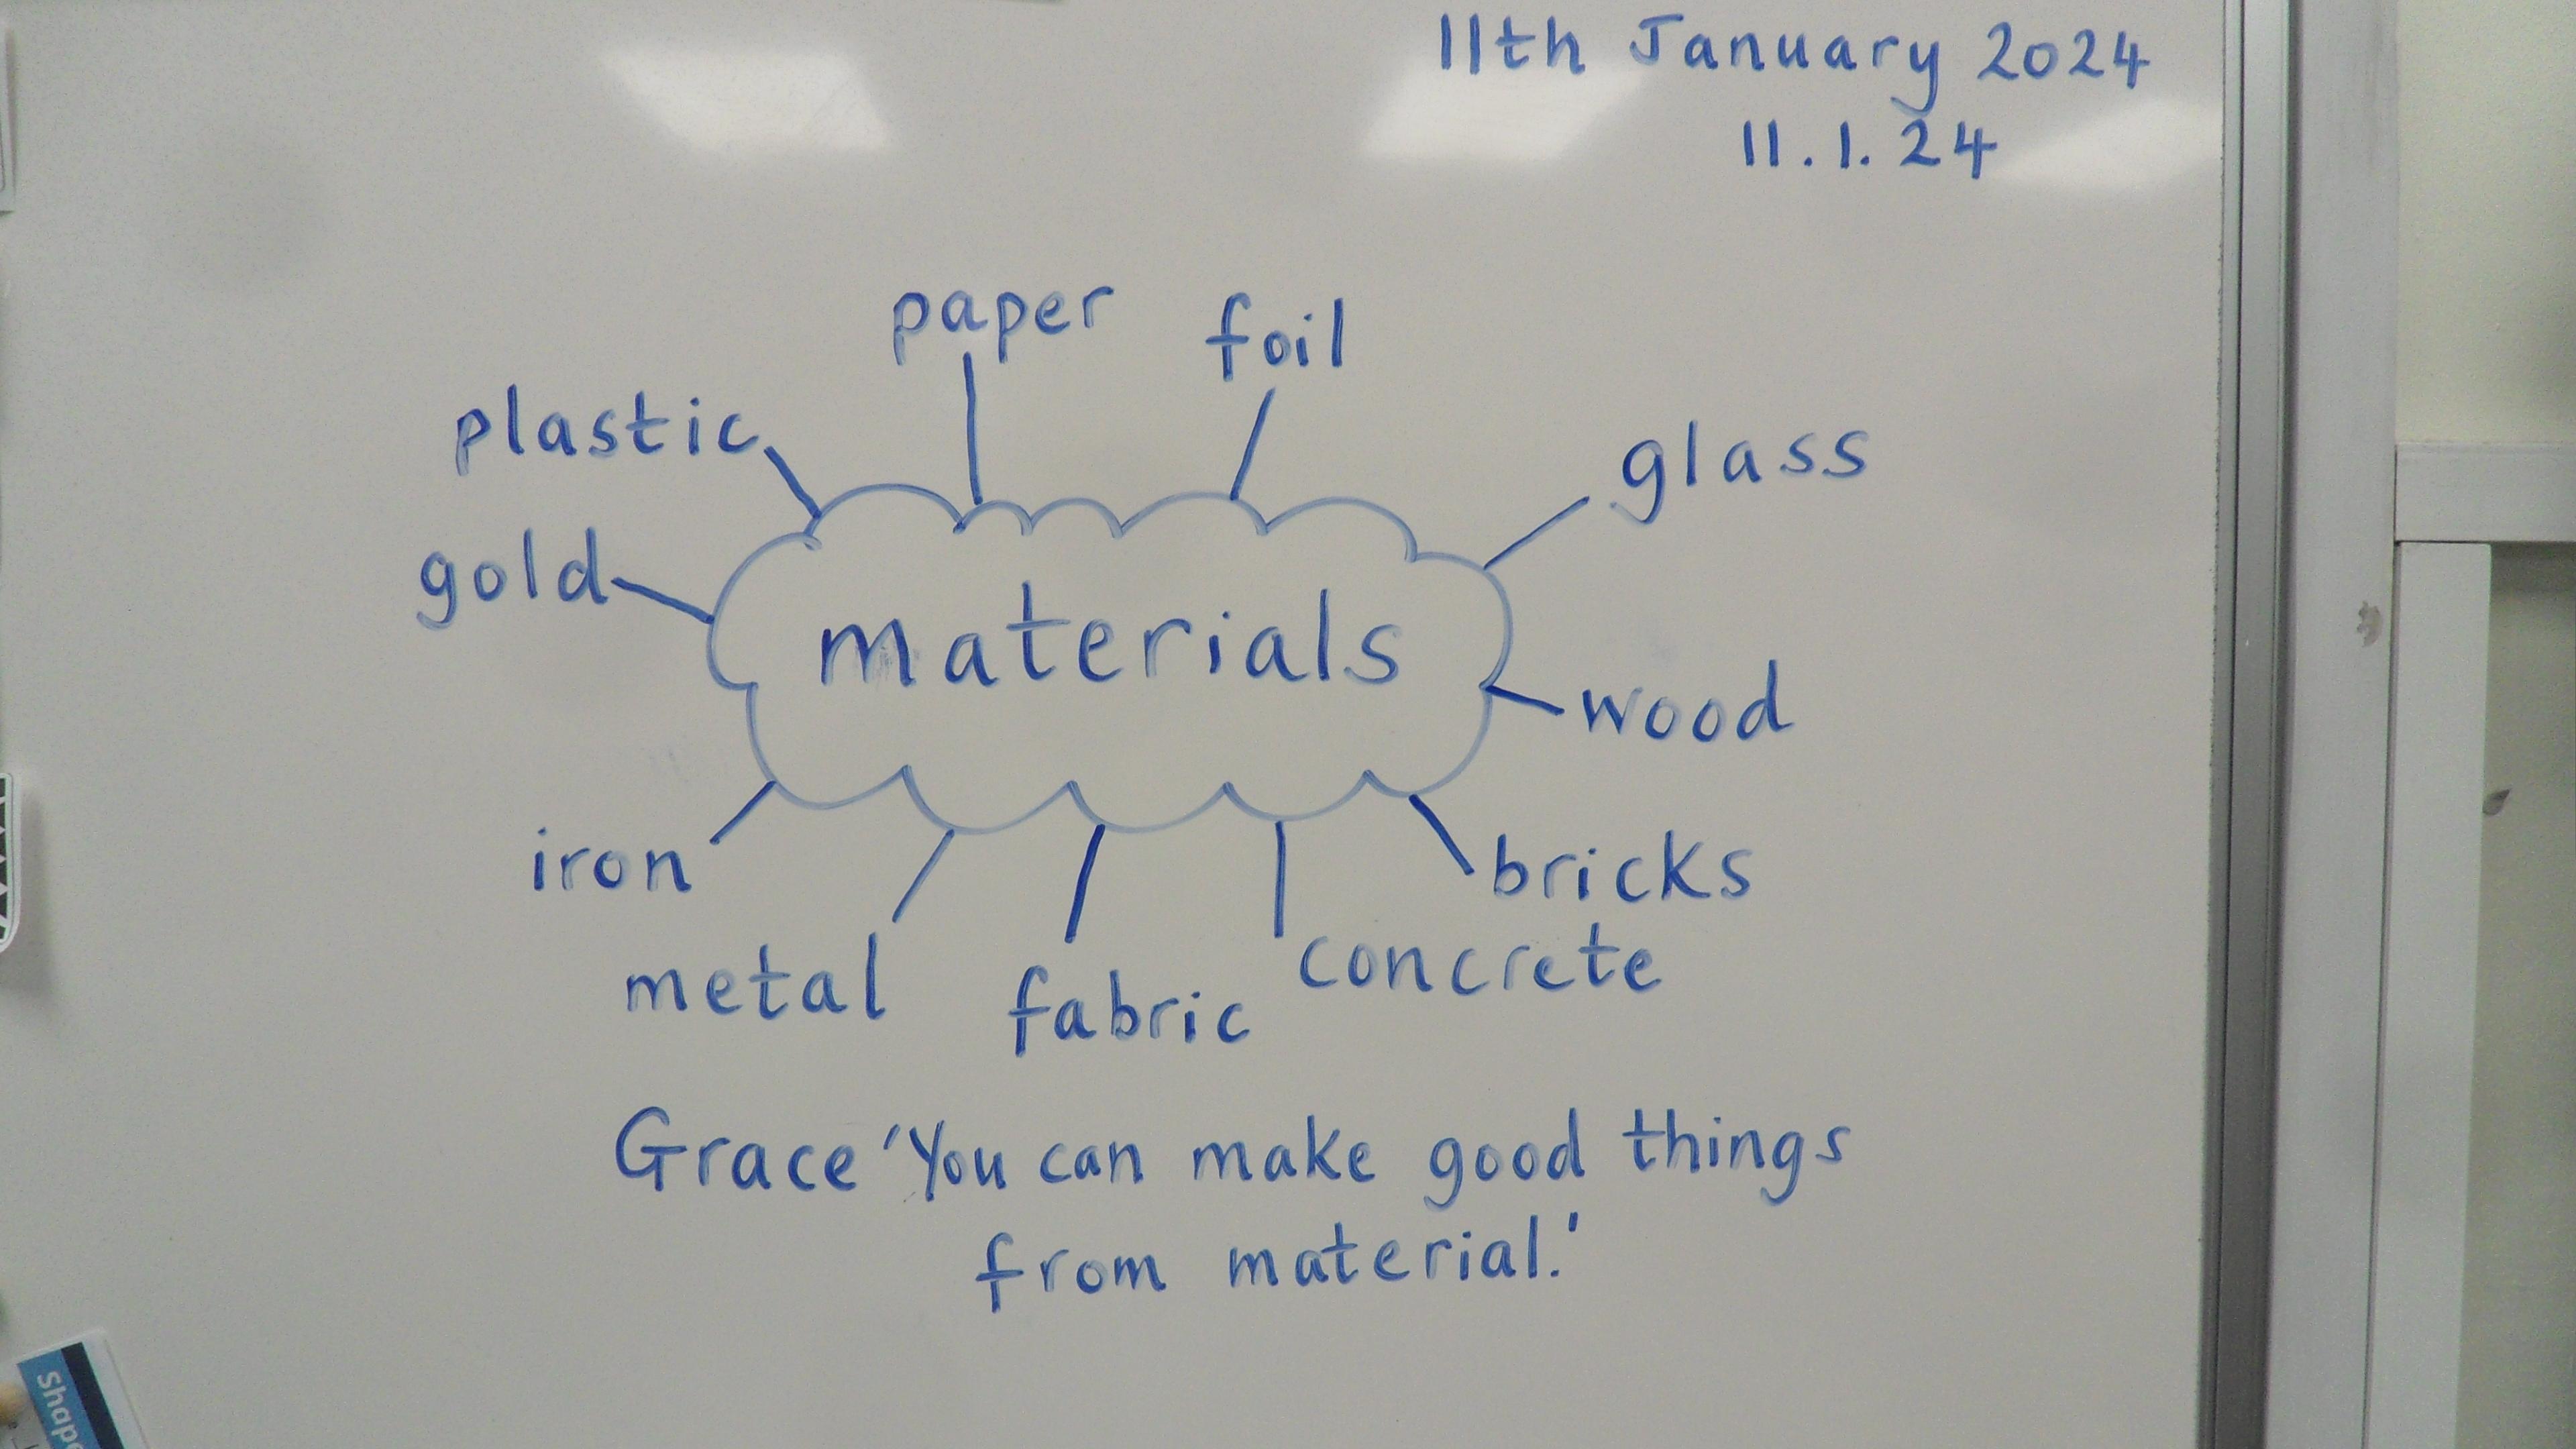 11th January 2024
11.1.24
paper
foil
plastic
glass
gold
materials
wood
iron
bricks
metal
fabric
concrete
Grace 'You can make good things
from material.'
Shap